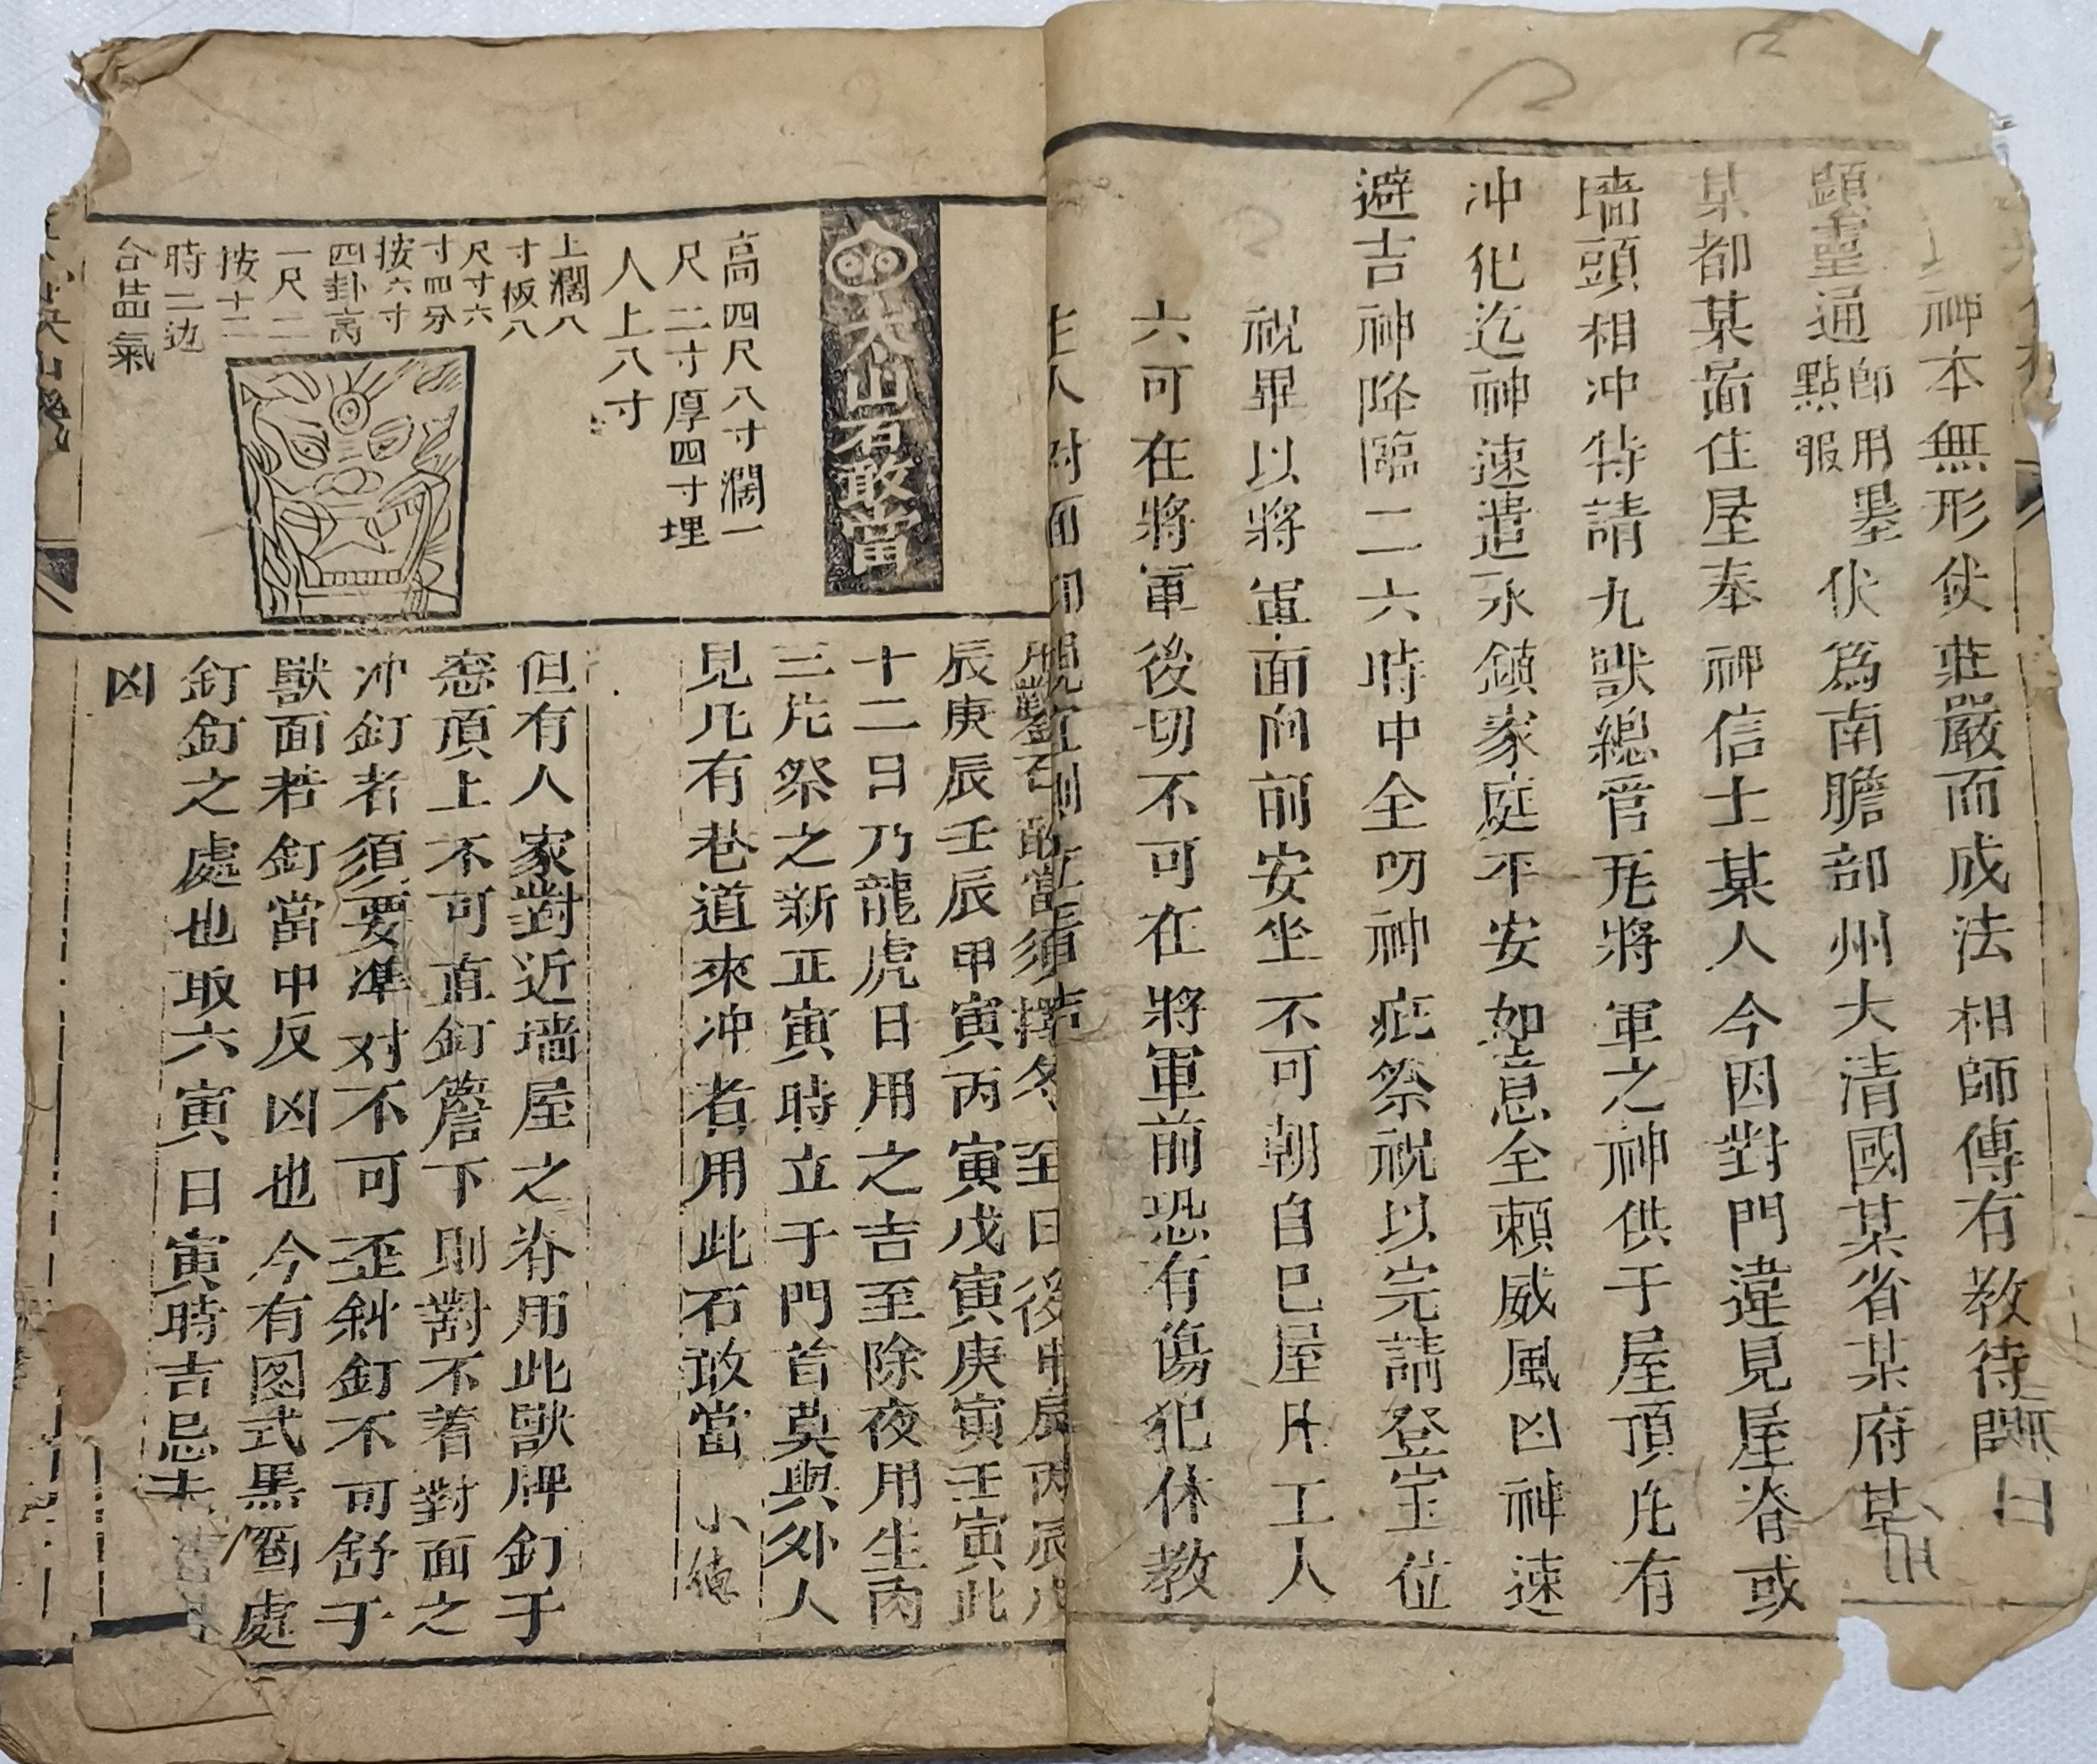 神本無形使莊嚴而成法相師傳有教待開日
顕霊通
師用墨
點眼
伏為南膽部州大清國某省某府某
某都某啚住屋奉神信士某人今因對門違見屋脊或
墻頭相冲特請九獣總管瓦將軍之神供于屋頂凢有
冲犯迄神速遣永鎮家庭平安如意全頼威風凶神速
避吉神降臨二六時中全叨神庇祭祝以完請登宝位
祝畢以將軍面向前安坐不可朝自己屋凡工人
六可在將軍後切不可在將軍前恐有傷犯休教
主人对面
太山石敢當
高四尺八寸濶一
尺二寸厚四寸埋
人上八寸
凡鑿石敢當須擇冬至日後甲辰丙辰戊
辰庚辰壬辰甲寅丙寅戊寅庚寅壬寅此
十二日乃龍虎日用之吉至除夜用生肉
三片祭之新正寅時立于門首莫與外人
見凢有巷道來冲者用此石敢當
上濶八
寸板八
尺寸六
寸四分
按六寸
四卦高
一尺二
按十二
時二边
合品氣
但有人家對近墻屋之脊用此獣牌釘于
窓頂上不可直釘簷下則對不着對面之
冲釘者須要準对不可歪斜釘不可舒于
獣面若釘當中反凶也今有图式黒圈處
釘釘之處也取六寅日寅時吉忌未
凶